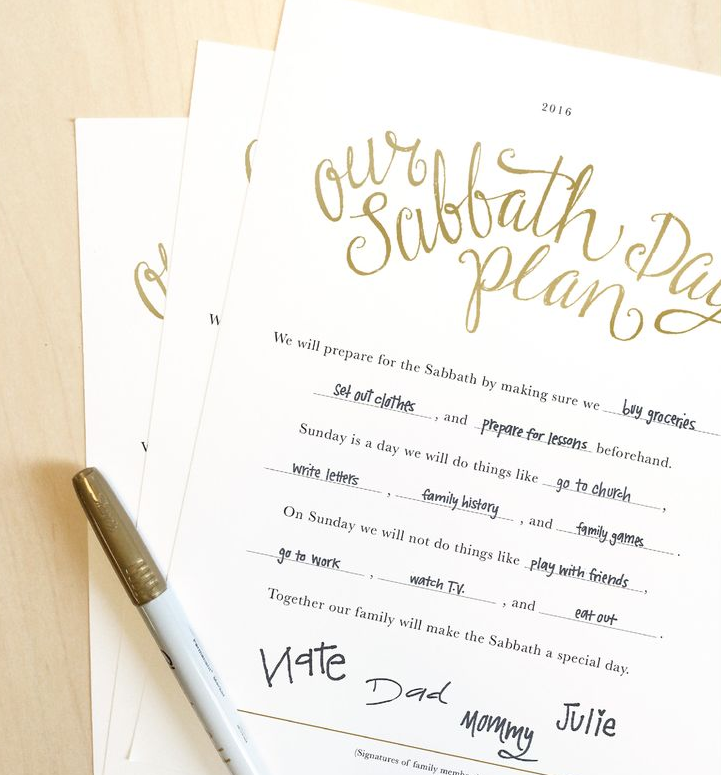 2016
our
Sabbath Day
plan
We will prepare for the Sabbath by making sure we buy groceries
set out clothes, and prepare for lessons beforehand.
Sunday is a day we will do things like go to church,
write letters, family history, and family games.
On Sunday we will not do things like play with friends,
go to work, watch T.V., and eat out.
Together our family will make the Sabbath a special day.
Nate Dad Mommy Julie
(Signatures of family